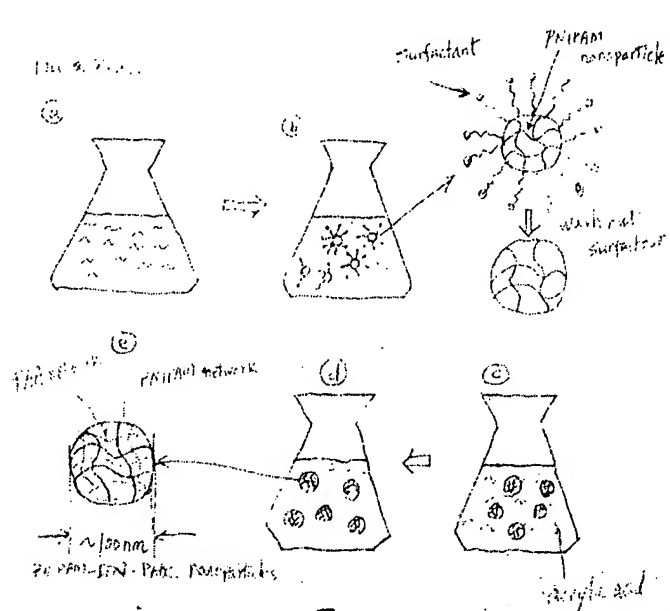 surfactant
PNIPAM
nanoparticle
ⓐ
ⓑ
wash out
surfactant
ⓔ
PNIPAM network
ⓓ
ⓒ
~100nm
nanoparticles
acrylic acid